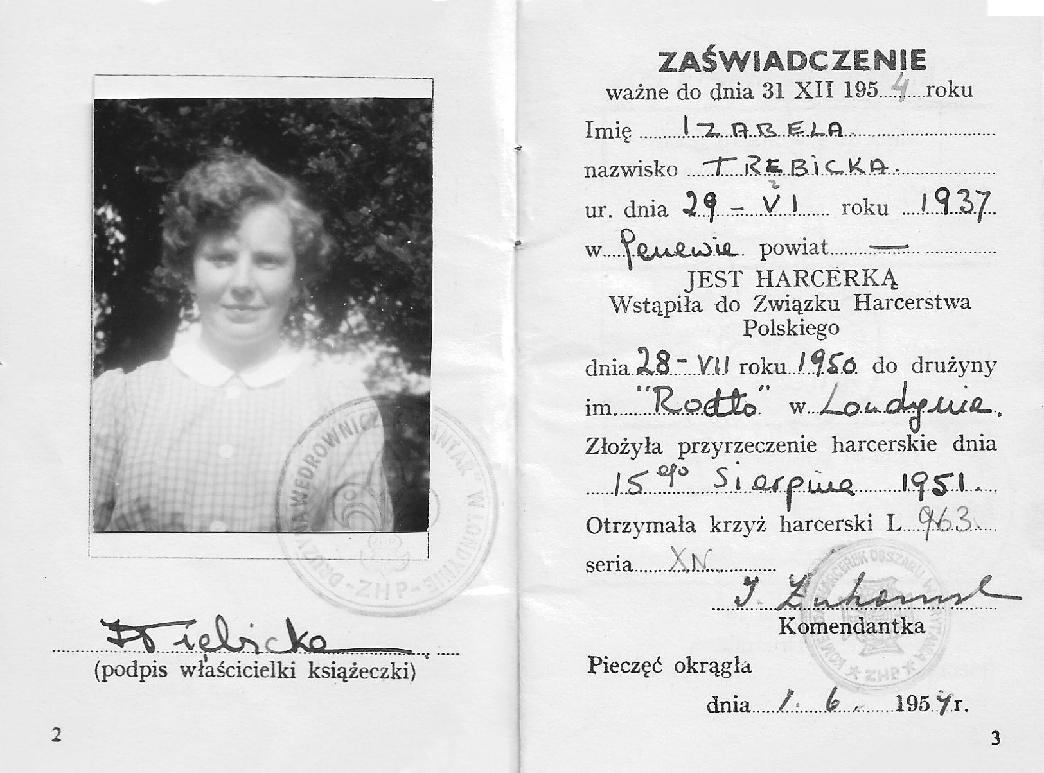 DRUŻYNA WĘDROWNICZ W LONDYNIE
-ZHP-
(podpis właścicielki książeczki)
2
ZAŚWIADCZENIE
ważne do dnia 31 XII 1954 roku
Imię IZABELA
nazwisko TRĘBICKA.
ur. dnia 29 - VI roku 1937
w Genewie powiat —
JEST HARCERKĄ
Wstąpiła do Związku Harcerstwa
Polskiego
dnia 28-VII roku 1950 do drużyny
im. "Rodło" w Londynie.
Złożyła przyrzeczenie harcerskie dnia
15ego Sierpnia 1951.
Otrzymała krzyż harcerski L. 963.
seria XN.
ZHP
Komendantka
Pieczęć okrągła
dnia 1. 6. 1954 r.
3